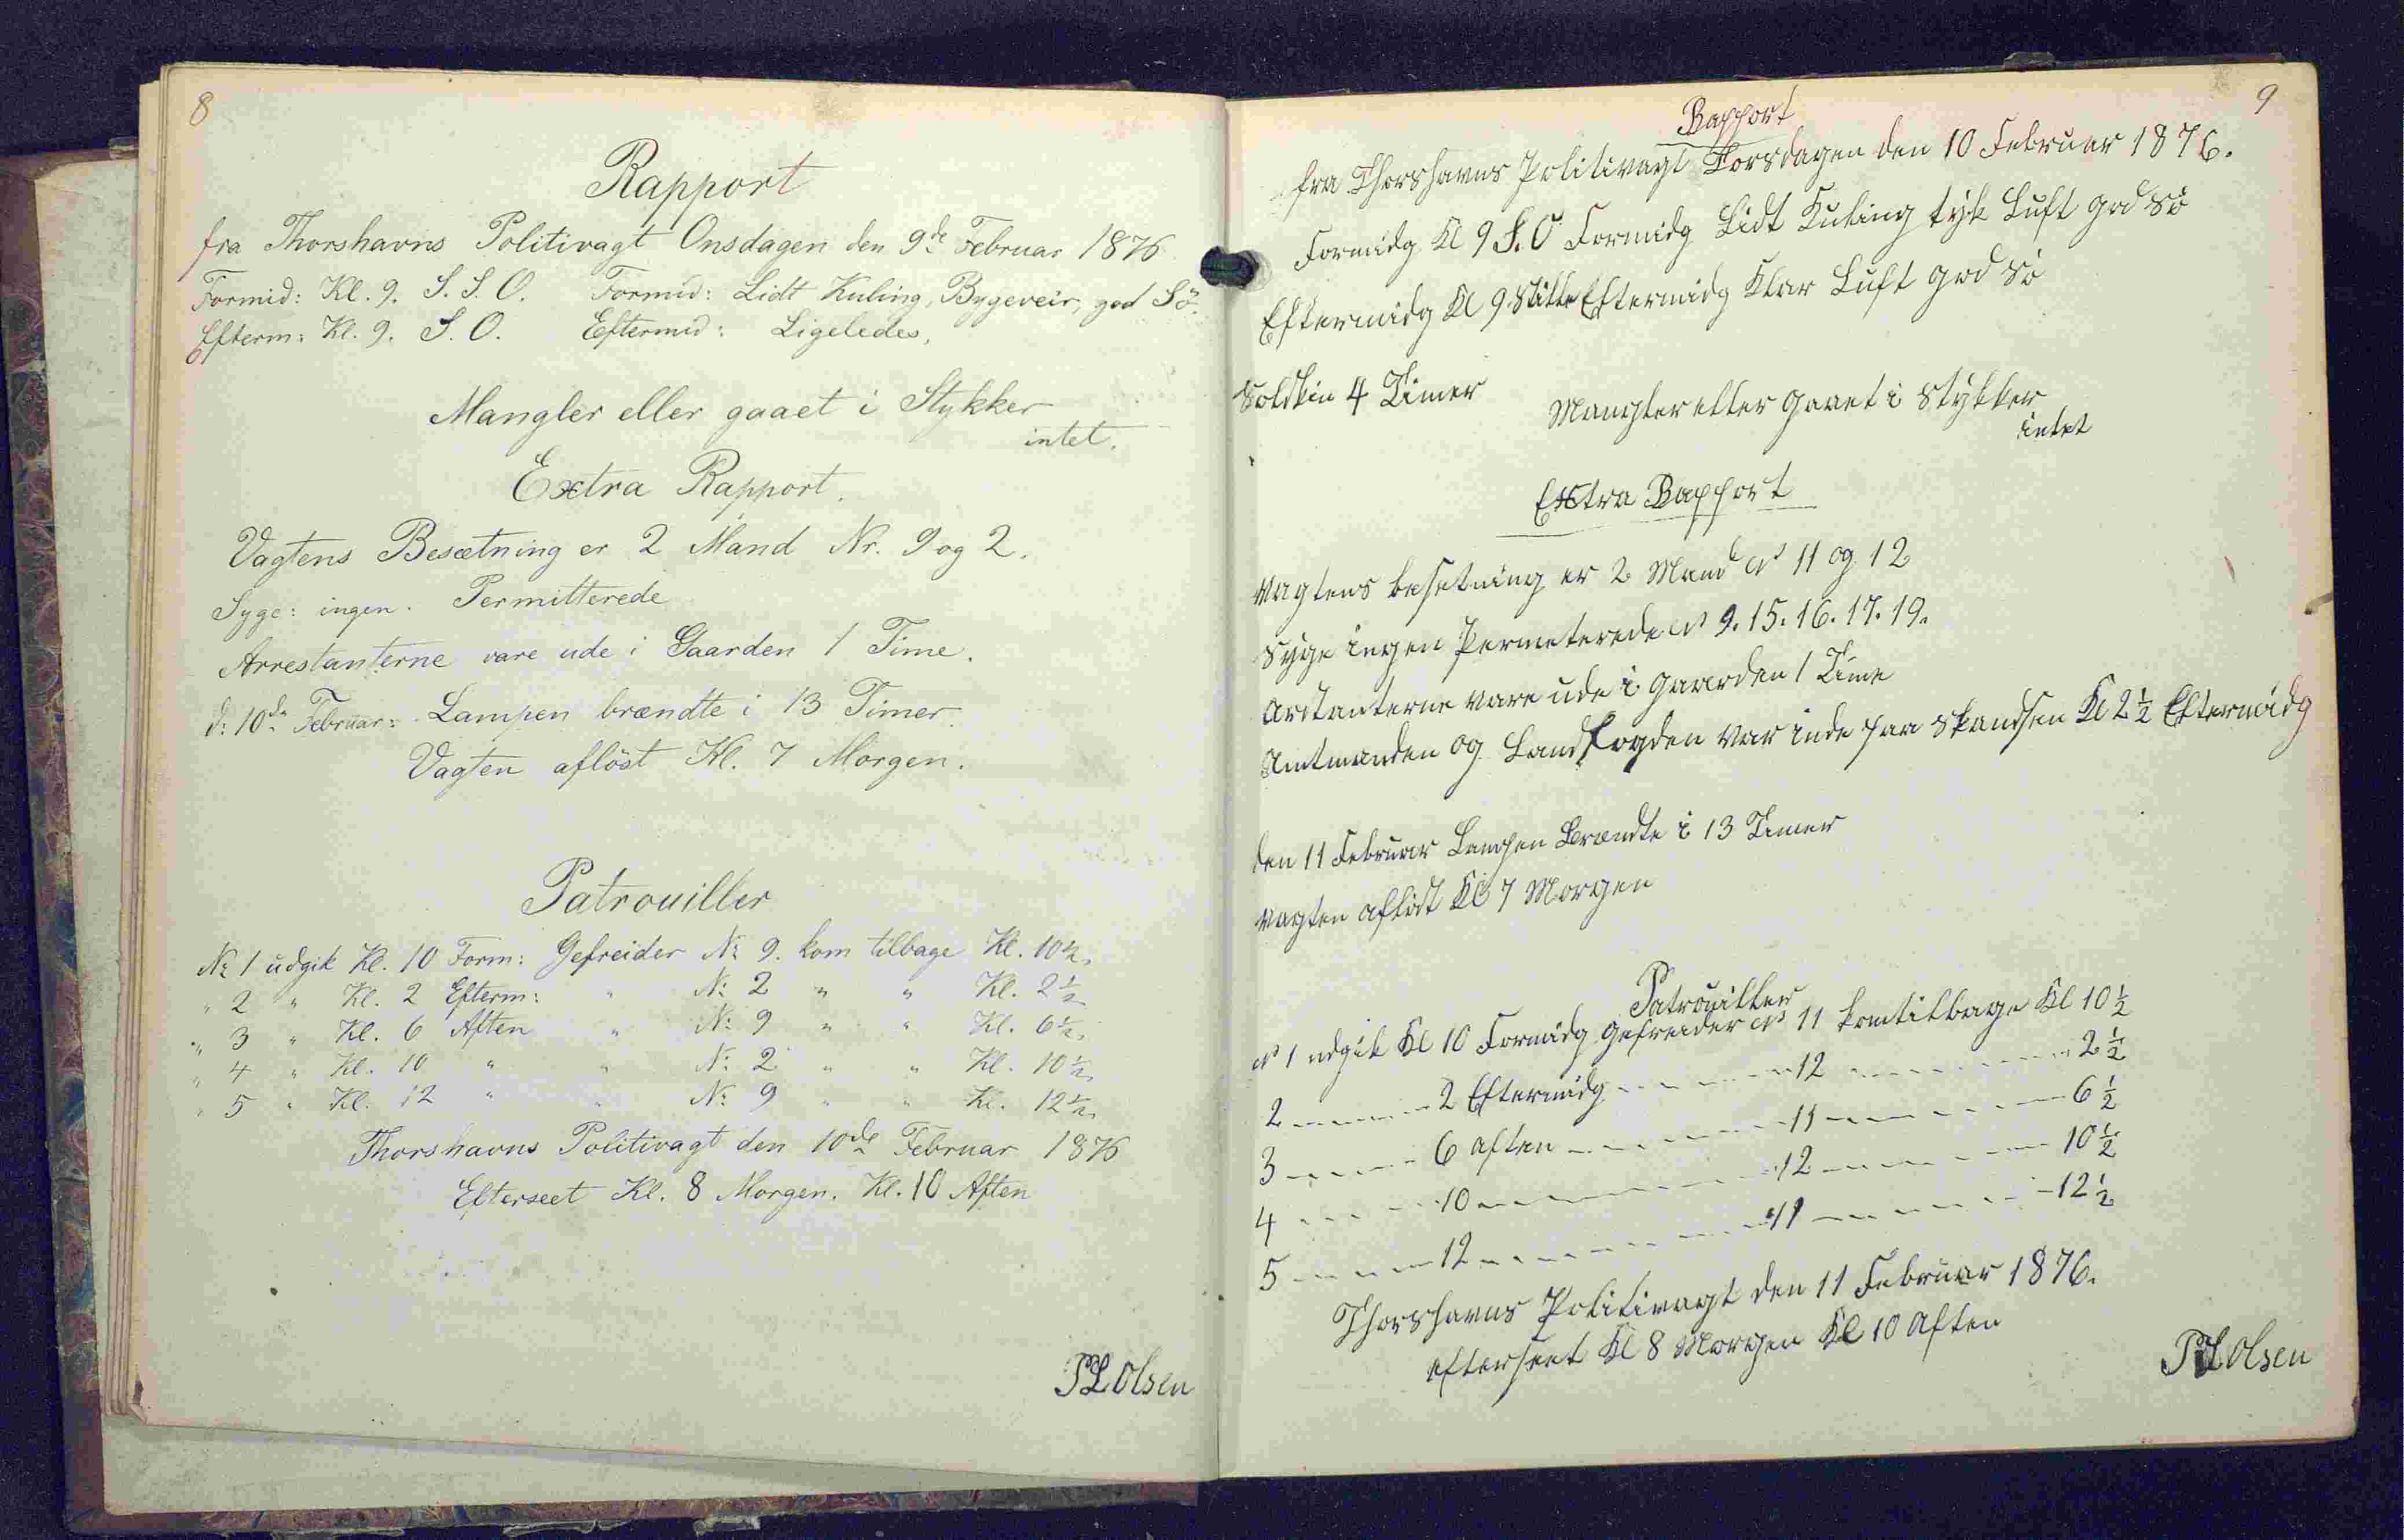 8
Rapport
fra Thorshavns Politivagt Onsdagen den 9de Februar 1876
Formid: Kl. 9. S. S. O. Formid: Lidt Kuling, Bygeveir, god Sö.
Efterm: Kl. 9. S. O. Eftermid: Ligeledes,
Mangler eller gaaet i Stykker
intet.
Extra Rapport.
Vagtens Besætning er 2 Mand Nr. 9 og 2.
Syge: ingen. Permitterede
Arrestanterne vare ude i Gaarden 1 Time.
d: 10de Februar: Lampen brændte i 13 Timer.
Vagten aflöst Kl. 7 Morgen.
Patrouiller
No 1 udgik Kl. 10 Form: Gefreider No 9. kom tilbage Kl. 10½.
" 2 " Kl. 2 Efterm: " No 2 " " Kl. 2½
" 3 " Kl. 6 Aften " No 9 " " Kl. 6½.
" 4 " Kl. 10 " " No 2 " " Kl. 10½.
" 5 " Kl. 12 " " No 9 " " Kl. 12½.
Thorshavns Politivagt den 10de Februar 1876
Efterseet Kl. 8 Morgen. Kl. 10 Aften
PLOlsen
9
Rapport
fra Thorshavns Politivagt Torsdagen den 10 Februar 1876.
Formidg Kl 9 S. O Formidg Lidt Kuling tÿk Luft god Sö
Eftermidg Kl 9 Stille Eftermidg Klar Luft god Sö
Solskin 4 Timer Mangler eller gaaet i Stÿkker
intet
Extra Rapport
Vagtens besetning er 2 Mand No 11 og 12
Syge ingen Permeterede No 9. 15. 16. 17. 19.
Arstanterne vare ude i gaarden 1 Time
Amtmanden og Landfogden var inde paa Skandsen Kl 2½ Eftermidg
den 11 Februar Lampen Brændte i 13 Timer
Vagten aflöst Kl 7 Morgen
Patrouiller
No 1 udgik Kl 10 Formidg Gefreider No 11 kom tilbage Kl 10½
2 - - - - - 2 Eftermidg - - - - - 12 - - - - - 2½
3 - - - - - 6 Aften - - - - - 11 - - - - - 6½
4 - - - - - 10 - - - - - 12 - - - - - 10½
5 - - - - - 12 - - - - - 11 - - - - - 12½
Thorshavns Politivagt den 11 Februar 1876.
efterseet Kl 8 Morgen Kl 10 Aften
PLOlsen